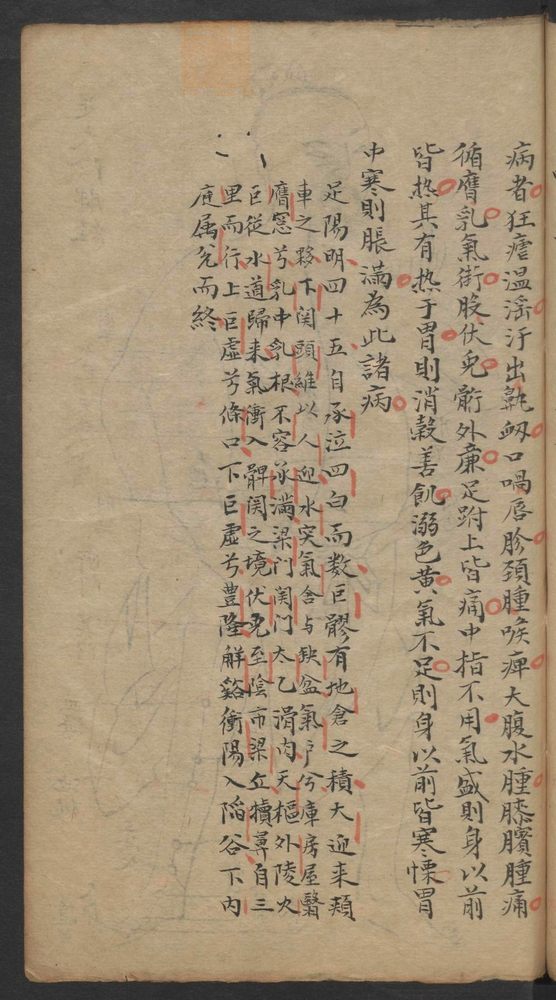 病者狂瘧温滛汙出鼽衂口喎唇胗頚腫喉痺大腹水腫膝臏腫痛
循膺乳氣街股伏兎䯒外亷足跗上皆痛中指不用氣盛則身以前
皆热其有热于胃則消穀善飢溺色黄氣不足則身以前皆寒慄胃
中寒則脹滿為此諸病
足陽明四十五自承泣四白而数巨髎有地倉之積大迎来頬
車之移下関頭維以人迎水突氣舎与缺盆氣户兮庫房屋翳
膺窓兮乳中乳根不容承滿梁门関门太乙滑肉天樞外陵大
巨從水道歸来氣衝入髀関之境伏兎至陰市梁丘犢鼻自三
里而行上巨虚兮條口下巨虚兮豊隆觧谿衝陽入陥谷下内
庭厲兊而終